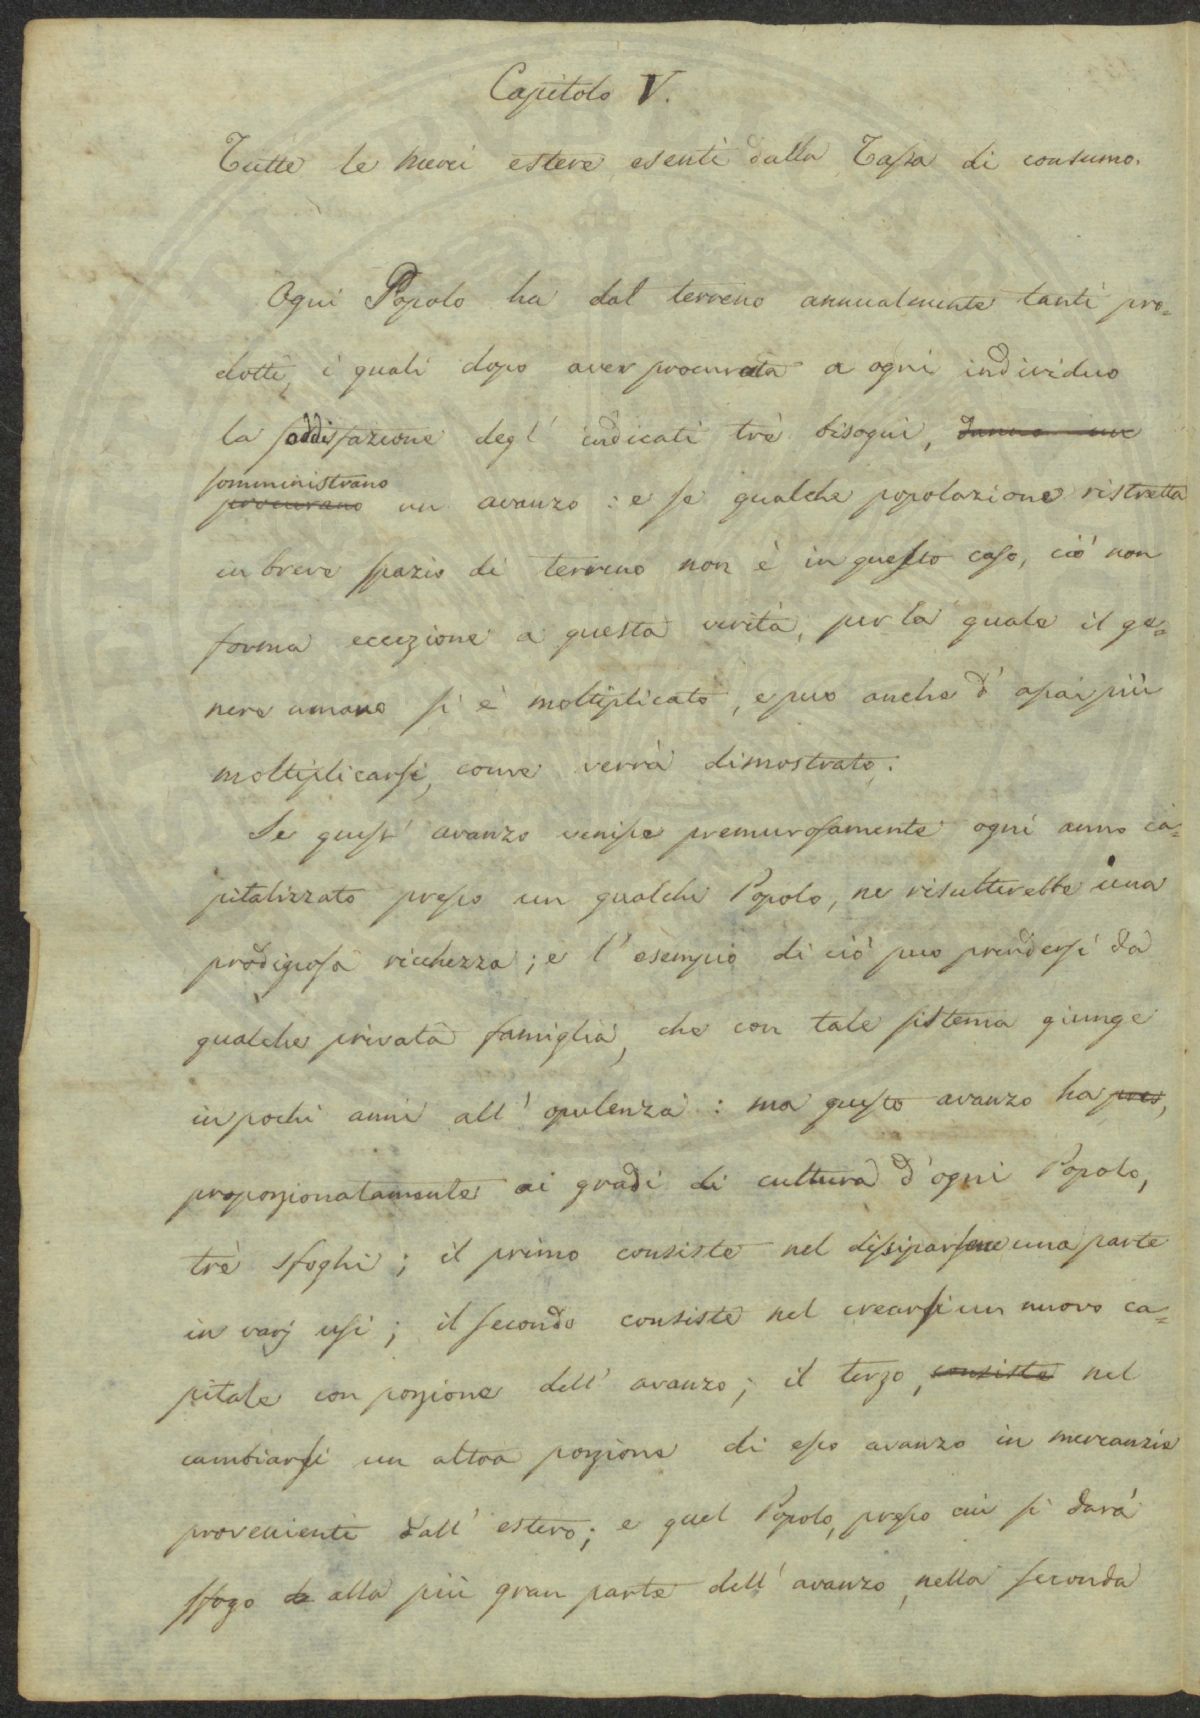 Capitolo V.
Tutte le merci estere esenti dalla Tassa di consumo.
Ogni Popolo ha dal terreno annualmente tanti pro=
dotti, i quali dopo aver procurata a ogni individuo
la soddisfazione degl' indicati trè bisogni, danno un
somministrano
procurano un avanzo : e se qualche popolazione ristretta
in breve spazio di terreno non è in questo caso, ciò non
forma eccezione a questa verità, per la quale il ge=
nere umano si è moltiplicato, e può anche d' assai più
moltiplicarsi, come verrà dimostrato.
Se quest' avanzo venisse premurosamente ogni anno ca=
pitalizzato presso un qualche Popolo, ne risulterebbe una
prodigiosa ricchezza ; e l' esempio di ciò può prendersi da
qualche privata famiglia, che con tale sistema giunge
in pochi anni all' opulenza : ma questo avanzo ha pres,
proporzionatamente ai gradi di cultura d' ogni Popolo,
trè sfoghi ; il primo consiste nel dissiparsene una parte
in varj usi ; il secondo consiste nel crearsi un nuovo ca=
pitale con porzione dell' avanzo ; il terzo, consiste nel
cambiarsi un altra porzione di esso avanzo in mercanzie
provenienti dall' estero ; e quel Popolo, presso cui si darà
sfogo alla più gran parte dell' avanzo, nella seconda